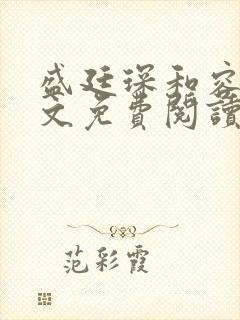 盛廷琛和容
文免費閱讀
范彩霞